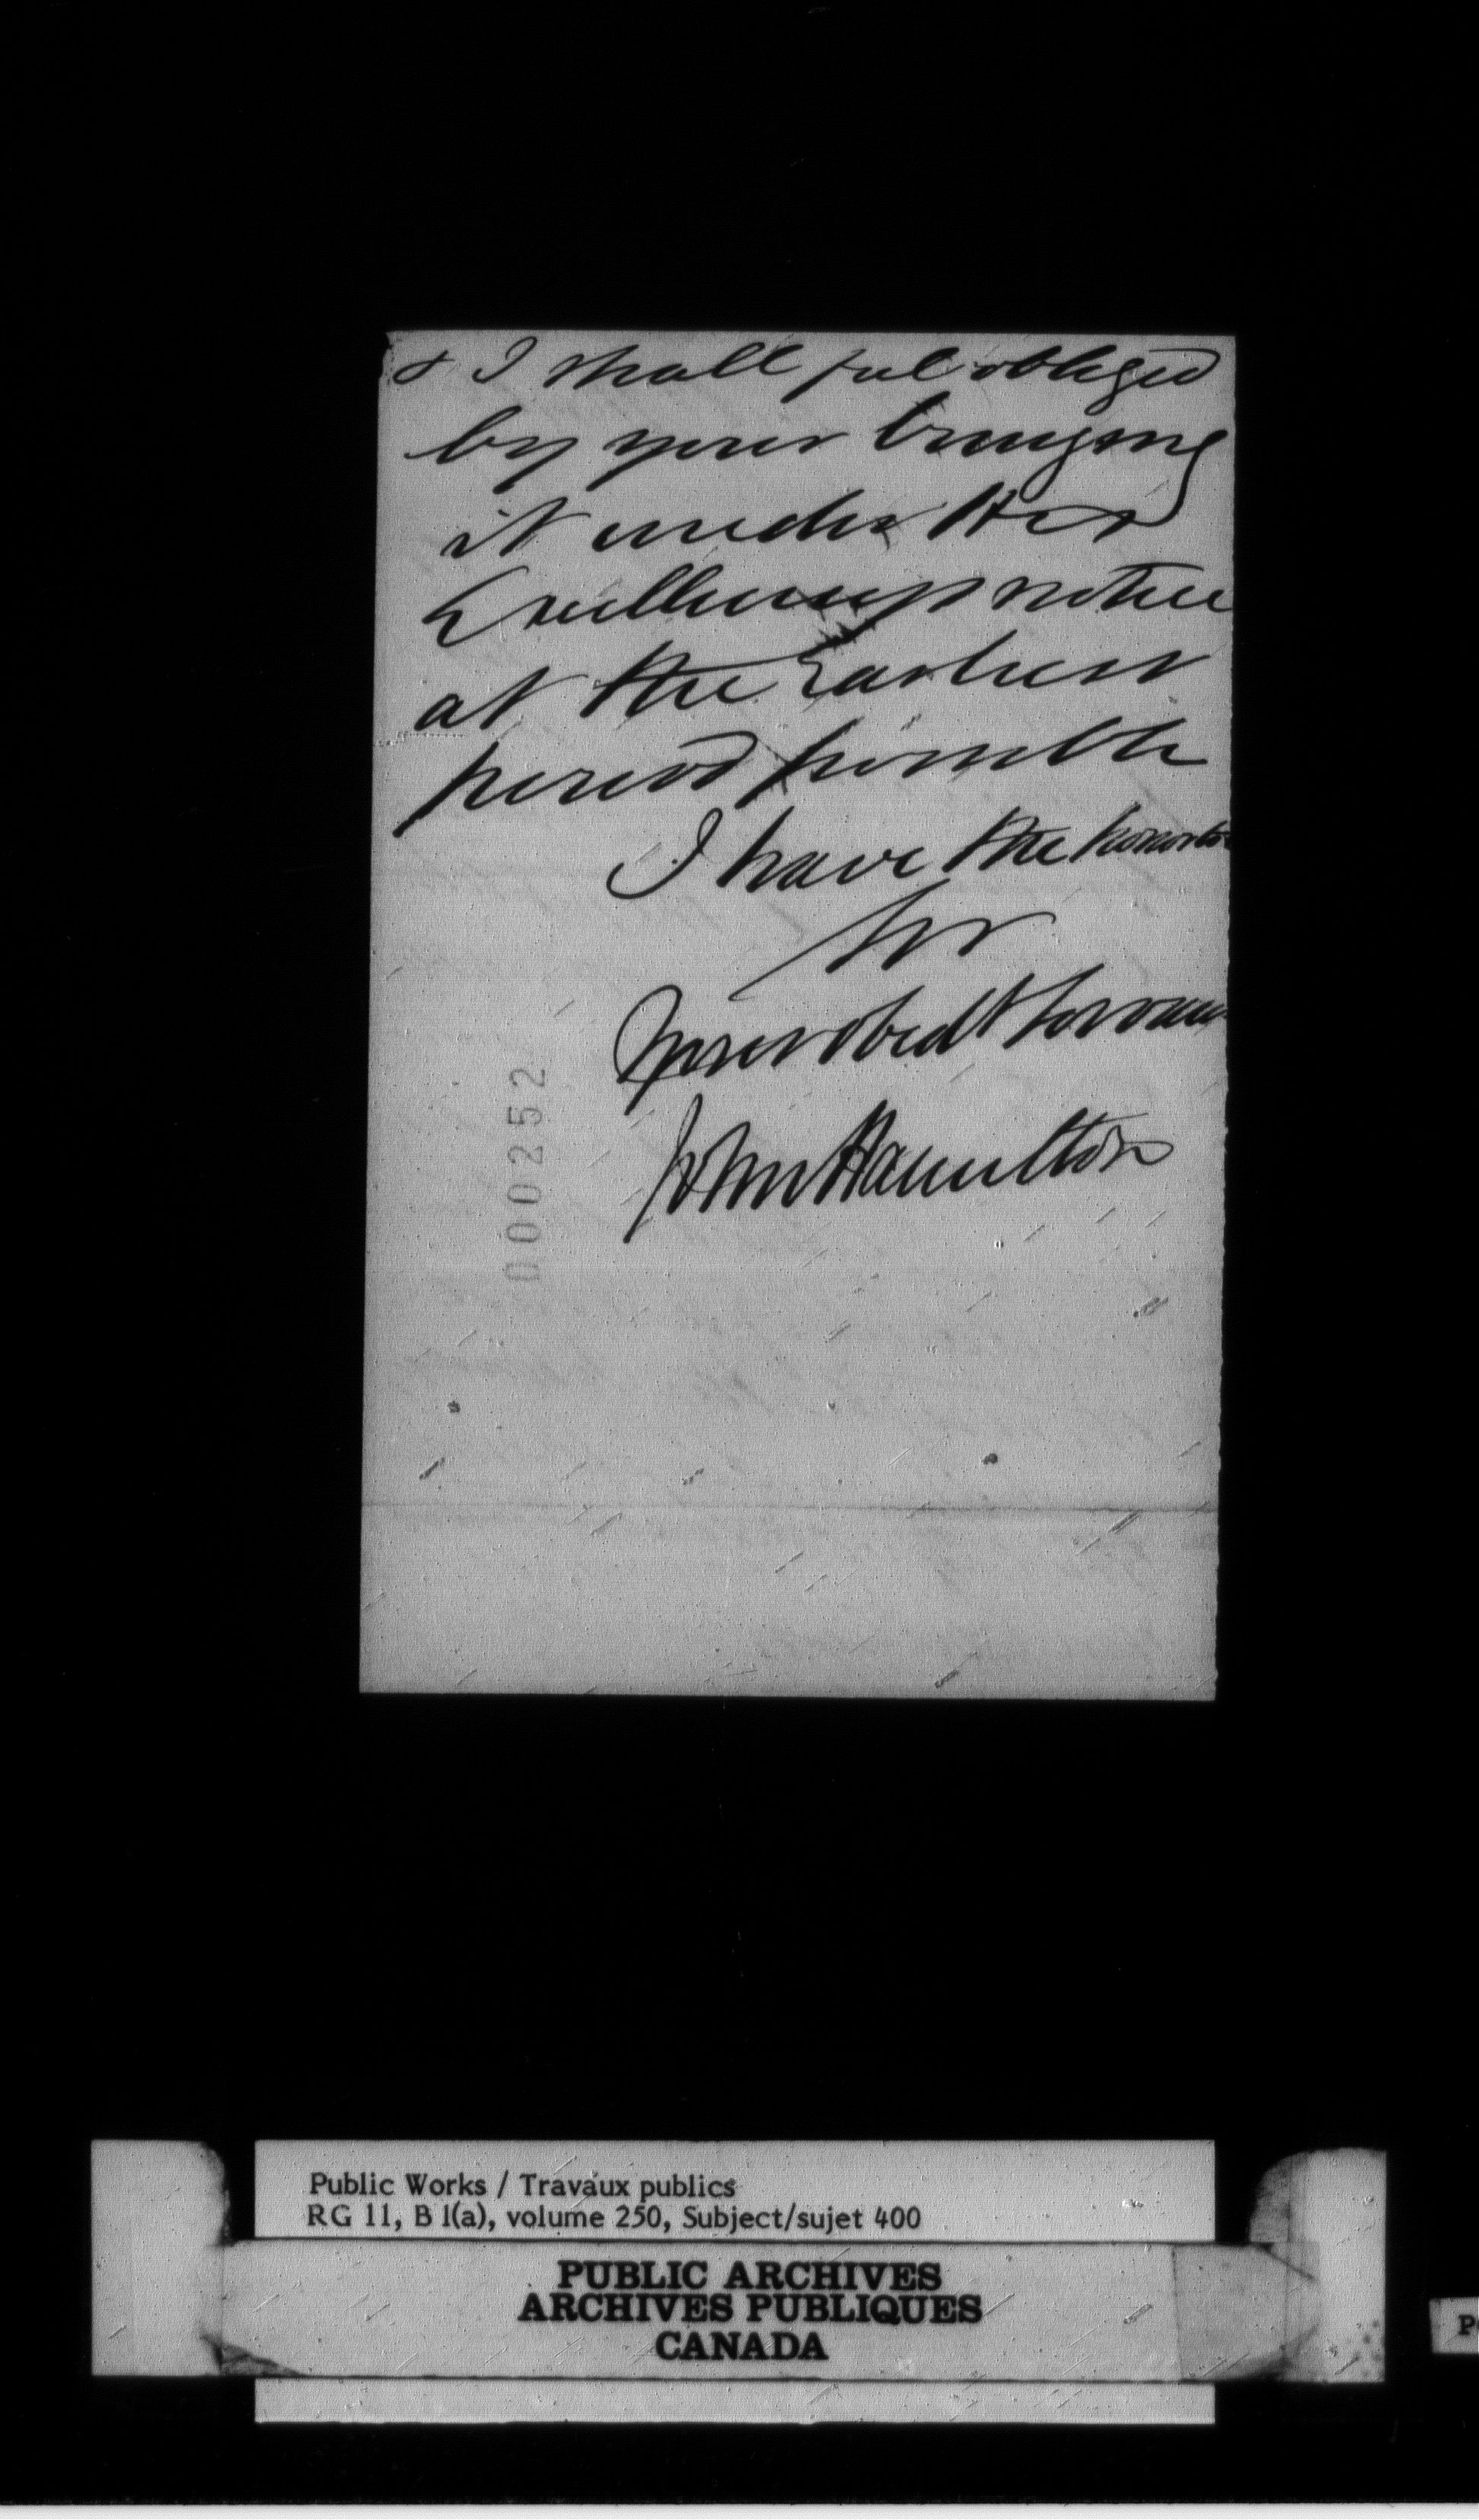 & I shall feel obliged
by your bringing
it under His
Excellency's notice
at the Earliest
period possible
I have the honor to
be
Your obedt Servant
John Hamilton
000252
Public Works / Travaux publics
RG 11, B 1(a), volume 250, Subject/sujet 400
PUBLIC ARCHIVES
ARCHIVES PUBLIQUES
CANADA